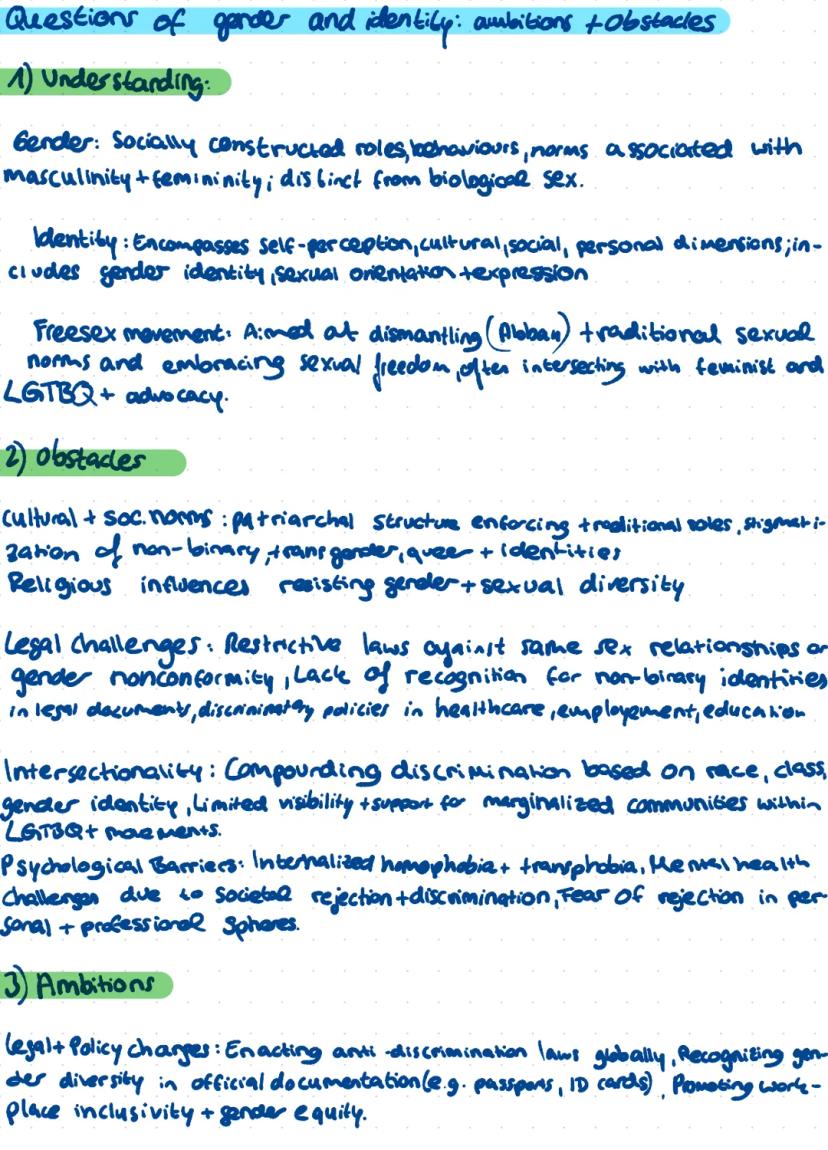 Questions of gender and identity: ambitions + Obstacles
1) Understanding:
Gender: Socially constructed roles, behaviours, norms associated with
masculinity + femininity; distinct from biological sex.
Identity: Encompasses self-perception, cultural, social, personal dimensions; in-
cludes gender identity, sexual orientation + expression
Freesex movement: Aimed at dismantling (Abbau) traditional sexual
norms and embracing sexual freedom, often intersecting with feminist and
LGTBQ+ advocacy.
2) Obstacles
Cultural + soc. norms: patriarchal structure enforcing traditional roles, stigmati-
zation of non-binary, transgender, queer + identities
Religious influences resisting gender + sexual diversity
Legal challenges: Restrictive laws against same sex relationships or
gender nonconformity, Lack of recognition for non-binary identities
in legal documents, discriminatory policies in healthcare, employement, education
Intersectionality: Compounding discrimination based on race, class,
gender identity, Limited visibility + support for marginalized communities within
LGTBQ+ movements.
Psychological Barriers: Internalized homophobia + transphobia, Mental health
challenges due to societal rejection + discrimination, Fear of rejection in per-
sonal + professional spheres.
3) Ambitions
Legal + Policy changes: Enacting anti-discrimination laws globally, Recognizing gen-
der diversity in official documentation (e.g. passports, ID cards), Promoting work-
place inclusivity + gender equity.